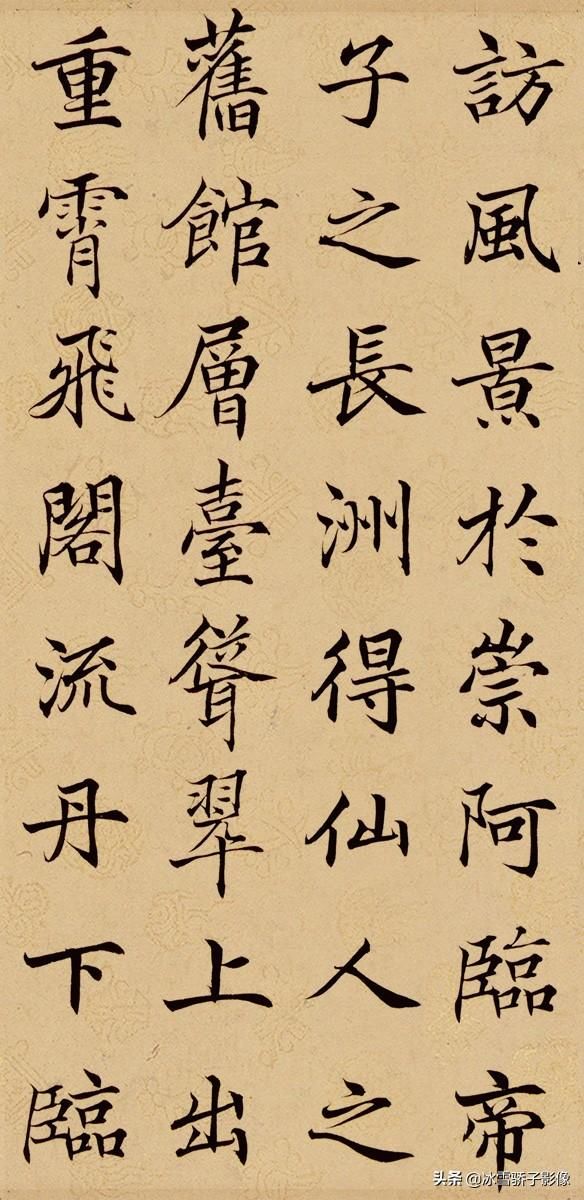 訪風景於崇阿臨帝
子之長洲得仙人之
舊館層臺聳翠上出
重霄飛閣流丹下臨
头条 @冰雪骄子影像